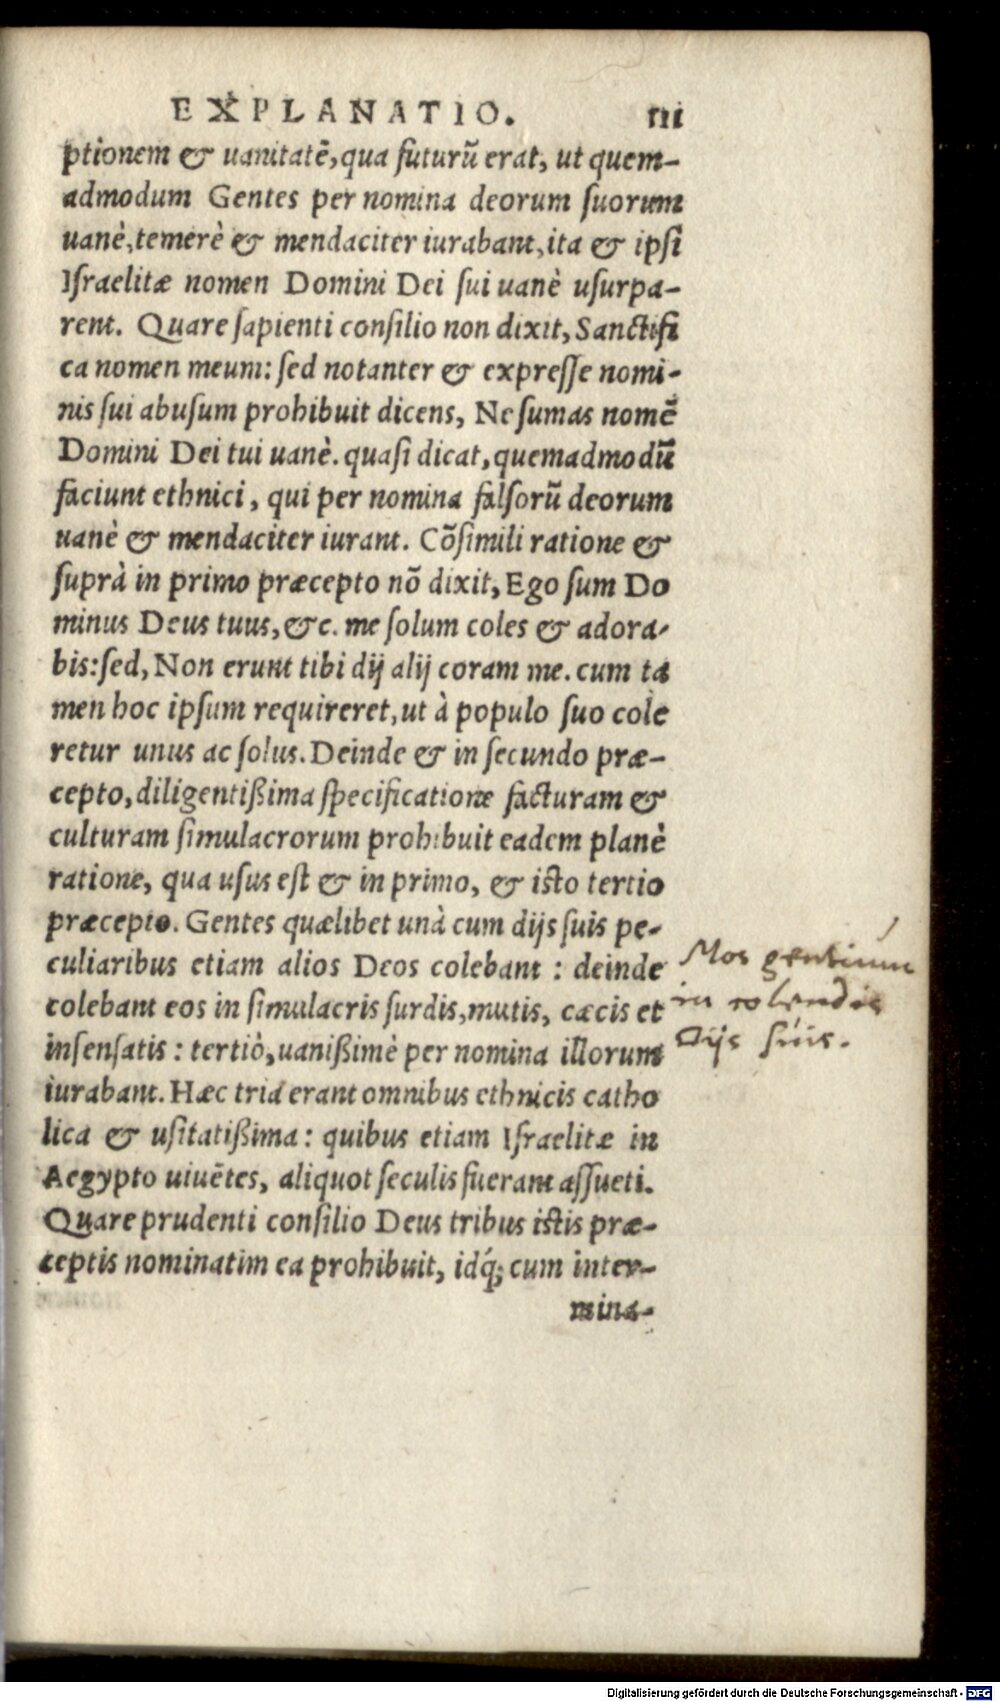 EXPLANATIO. III
ptionem & uanitatẽ, qua futurũ erat, ut quem-
admodum Gentes per nomina deorum suorum
uanè, temerè & mendaciter iurabant, ita & ipsi
Israelitæ nomen Domini Dei sui uanè usurpa-
rent. Quare sapienti consilio non dixit, Sanctifi
ca nomen meum: sed notanter & expresse nomi-
nis sui abusum prohibuit dicens, Ne sumas nomẽ
Domini Dei tui uanè. quasi dicat, quemadmodũ
faciunt ethnici, qui per nomina falsorũ deorum
uanè & mendaciter iurant. Cõsimili ratione &
suprà in primo præcepto nõ dixit, Ego sum Do
minus Deus tuus, &c. me solum coles & adora-
bis: sed, Non erunt tibi dij alij coram me. cum ta
men hoc ipsum requireret, ut à populo suo cole
retur unus ac solus. Deinde & in secundo præ-
cepto, diligentißima specificatione facturam &
culturam simulacrorum prohibuit eadem planè
ratione, qua usus est & in primo, & isto tertio
præcepto. Gentes quælibet unà cum dijs suis pe-
culiaribus etiam alios Deos colebant : deinde
colebant eos in simulacris surdis, mutis, cæcis et
insensatis : tertiò, uanißimè per nomina illorum
iurabant. Hæc tria erant omnibus ethnicis catho
lica & usitatißima : quibus etiam Israelitæ in
Aegypto uiuẽtes, aliquot seculis fuerant assueti.
Quare prudenti consilio Deus tribus istis præ-
ceptis nominatim ea prohibuit, idq́; cum inter-
mina-
Mos gentium
in colendis
Dijs suis.
Digitalisierung gefördert durch die Deutsche Forschungsgemeinschaft - DFG